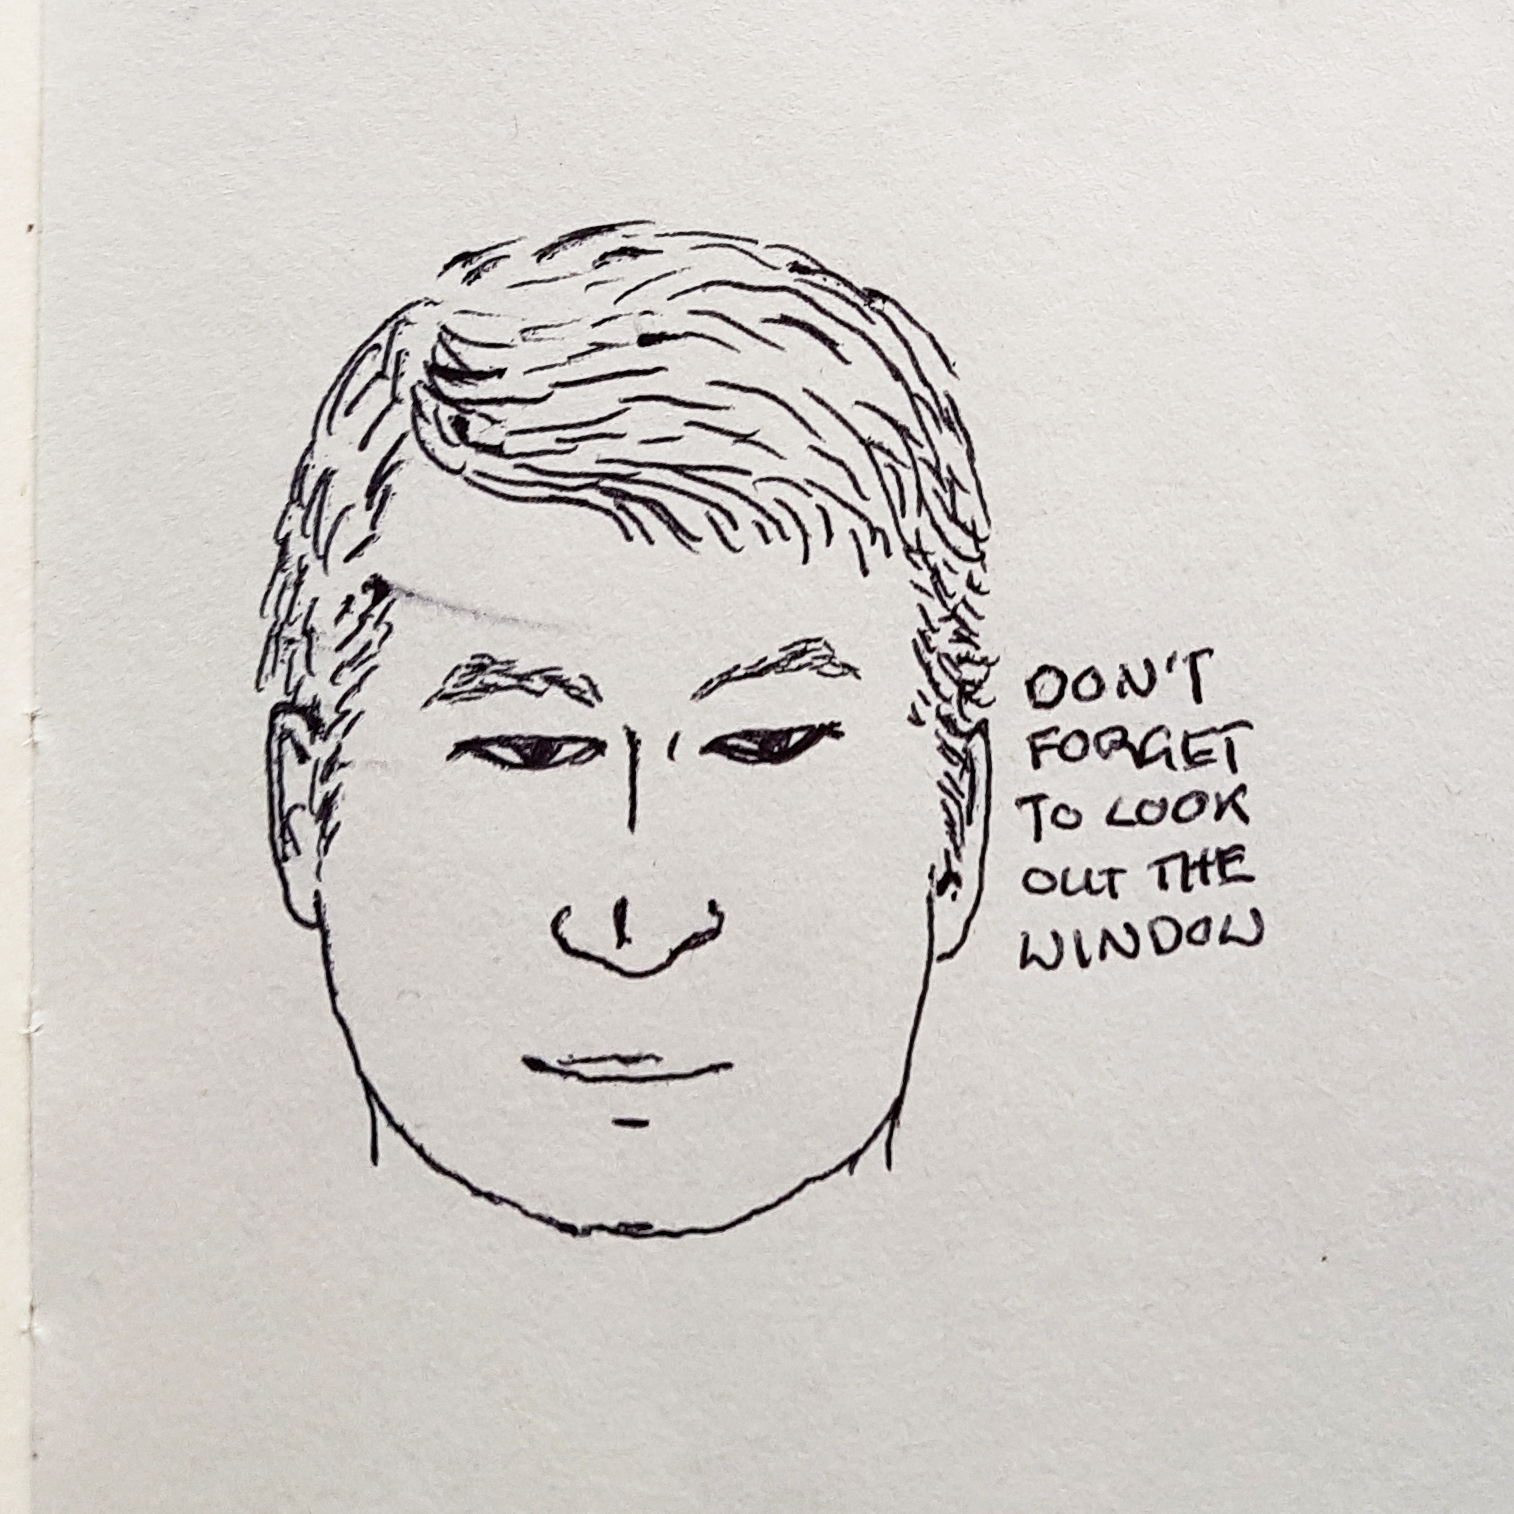 DON'T
FORGET
TO LOOK
OUT THE
WINDOW